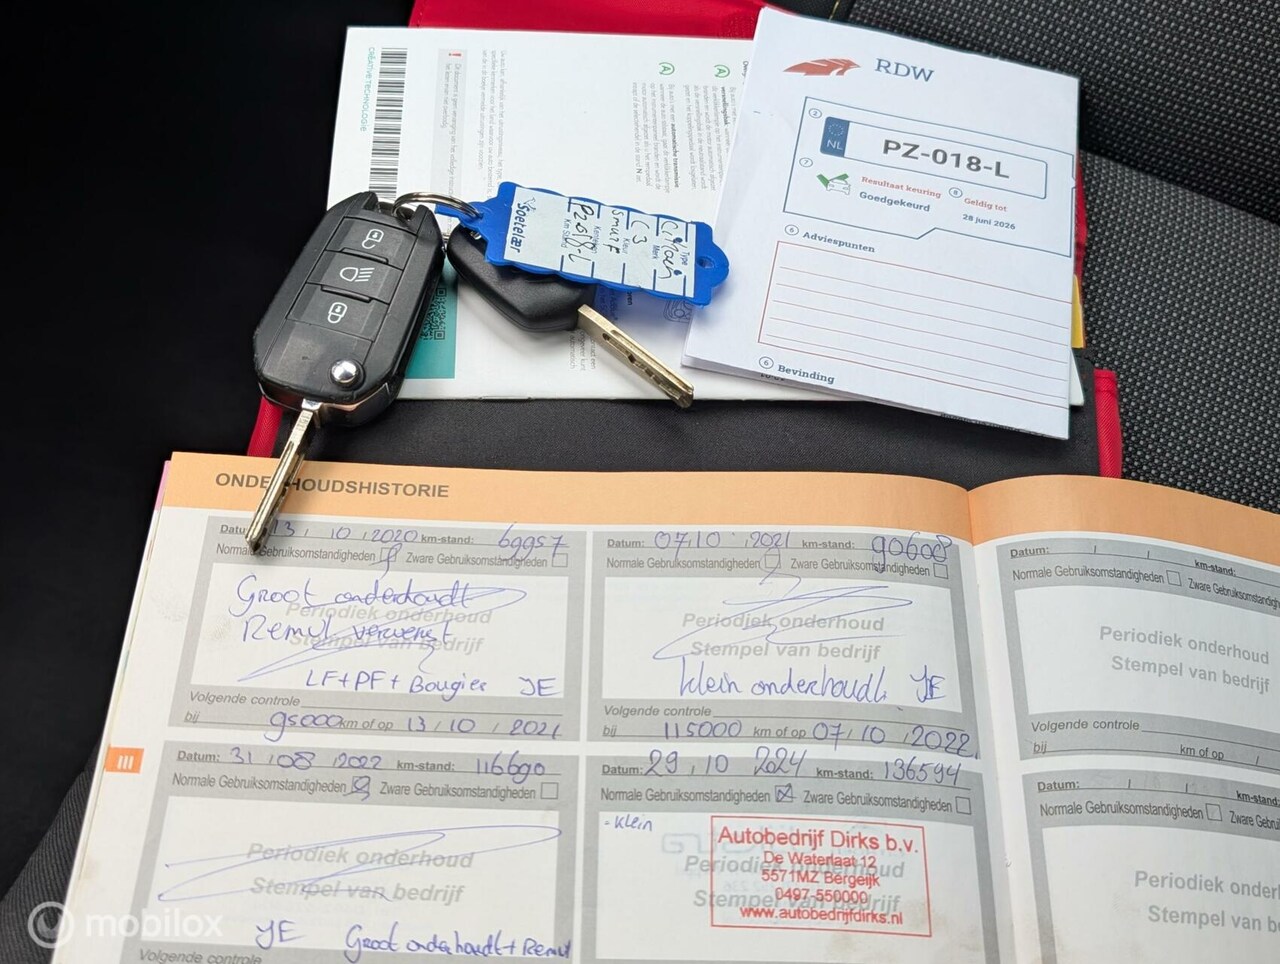 CRÉATIVE TECHNOLOGIE
RDW
NL
PZ-018-L
Resultaat keuring
Goedgekeurd
Geldig tot
28 juni 2026
Adviespunten
Bevinding
Type
Merk
Citroën
C3
Kleur
smurf
Kenteken
PZ018L
Km Stand
Soetelær
ONDERHOUDSHISTORIE
Datum: 13 / 10 / 2020 km-stand: 69957
Normale Gebruiksomstandigheden Zware Gebruiksomstandigheden
Groot onderhoudt
Periodiek onderhoud
Remvl ververst
Stempel van bedrijf
LF+PF+ Bougies JE
Volgende controle
bij 95000 km of op 13 / 10 / 2021
Datum: 07 / 10 / 2021 km-stand: 90608
Normale Gebruiksomstandigheden Zware Gebruiksomstandigheden
Periodiek onderhoud
Stempel van bedrijf
klein onderhoudt JE
Volgende controle
bij 115000 km of op 07 / 10 / 2022
Datum: 31 / 08 / 2022 km-stand: 116690
Normale Gebruiksomstandigheden Zware Gebruiksomstandigheden
Periodiek onderhoud
Stempel van bedrijf
JE Groot onderhoudt + Remvl
Volgende controle
Datum: 29 / 10 2024 km-stand: 136594
Normale Gebruiksomstandigheden Zware Gebruiksomstandigheden
= klein
Periodiek onderhoud
Stempel van bedrijf
Autobedrijf Dirks b.v.
De Waterlaat 12
5571MZ Bergeijk
0497-550000
www.autobedrijfdirks.nl
Datum: / / km-stand:
Normale Gebruiksomstandigheden Zware Gebruiksomstandig
Periodiek onderhoud
Stempel van bedrijf
Volgende controle
bij km of op /
Datum: / / km-stand:
Normale Gebruiksomstandigheden Zware Gebruiksom
Periodiek onder
Stempel van b
III
mobilox